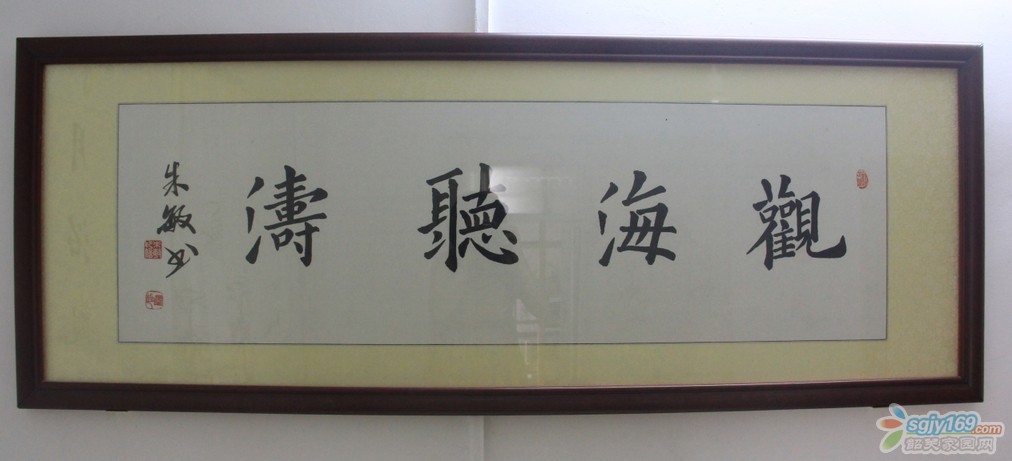 觀海聽濤
朱敏书
sgjy169.com
韶关家园网